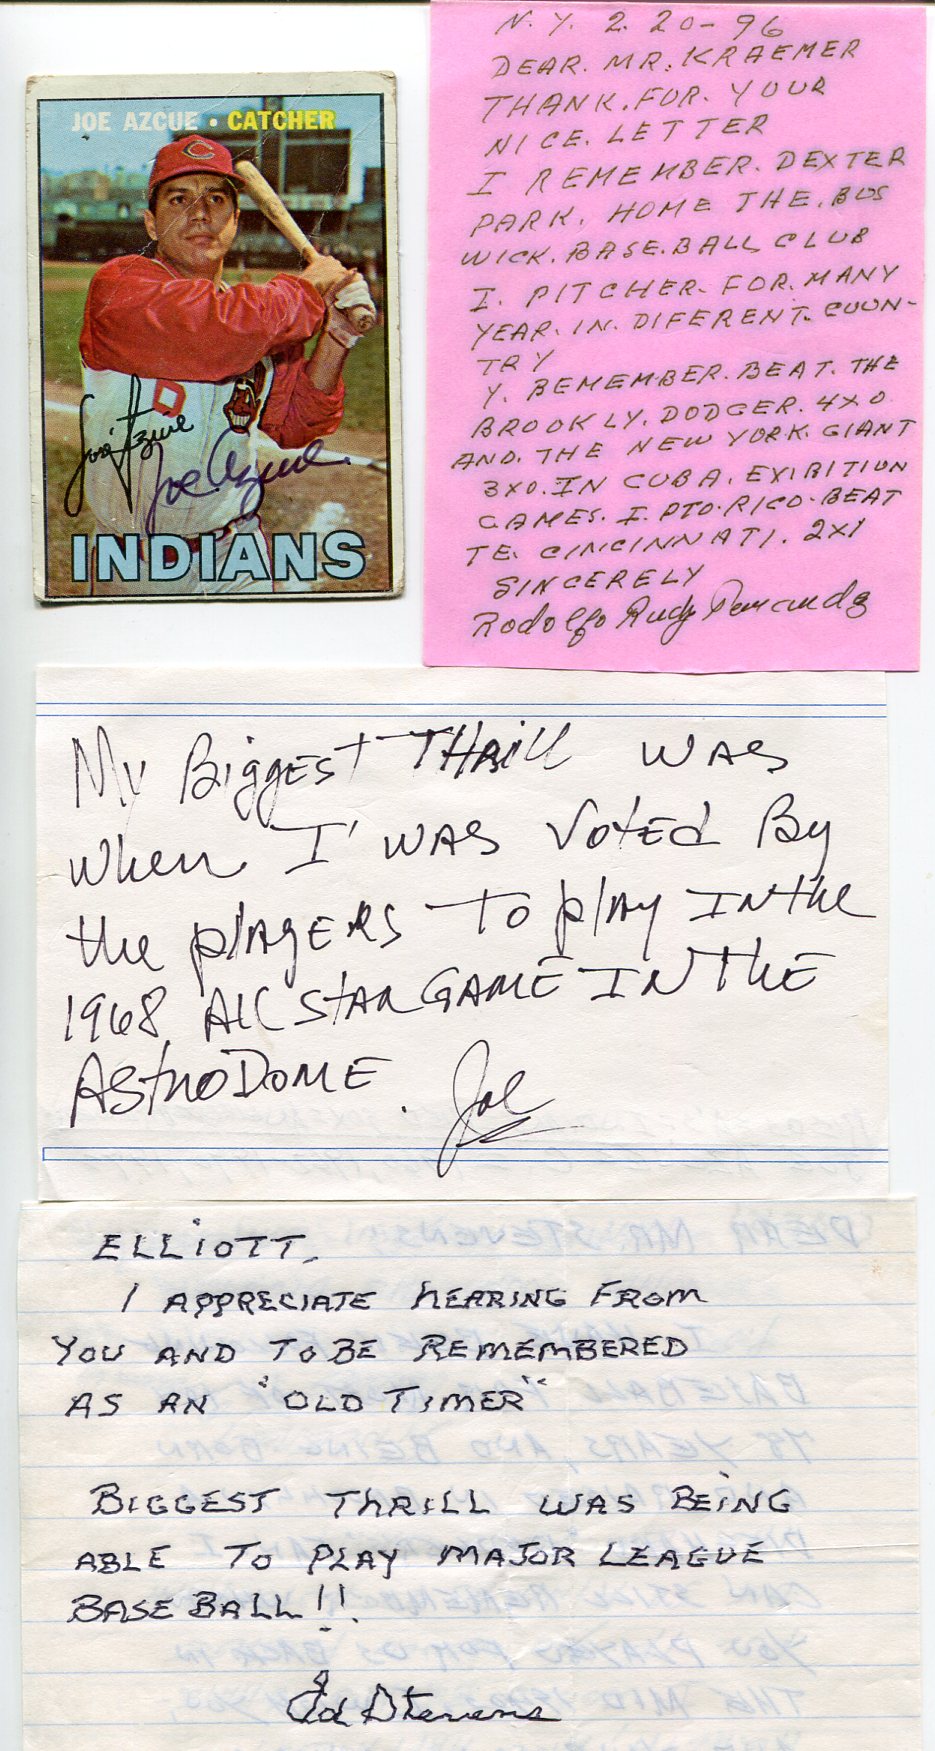 JOE AZCUE • CATCHER
C
Jose Azcue
Joe Azcue
INDIANS
N.Y. 2. 20-96
DEAR. MR. KRAEMER
THANK. FOR. YOUR
NICE. LETTER
I REMEMBER. DEXTER
PARK. HOME THE. BUS
WICK. BASE. BALL CLUB
I. PITCHER. FOR. MANY
YEAR. IN. DIFERENT. COUN-
TRY
Y. BEMEMBER. BEAT. THE
BROOKLY. DODGER. 4X0
AND. THE NEW YORK. GIANT
3X0. IN CUBA. EXIBITION
GAMES. I. PTO. RICO. BEAT
TE. CINCINNATI. 2X1
SINCERELY
Rodolfo Rudy
My Biggest THRill WAS
when I WAS Voted By
the plAyERS To plAy IN the
1968 All StAR GAME IN THE
AstroDOME. Joe
ELLIOTT,
I APPRECIATE HEARING FROM
YOU AND TO BE REMEMBERED
AS AN "OLD TIMER"
BIGGEST THRILL WAS BEING
ABLE TO PLAY MAJOR LEAGUE
BASEBALL!!
Ed Stevens
DEAR MR. STEVENS